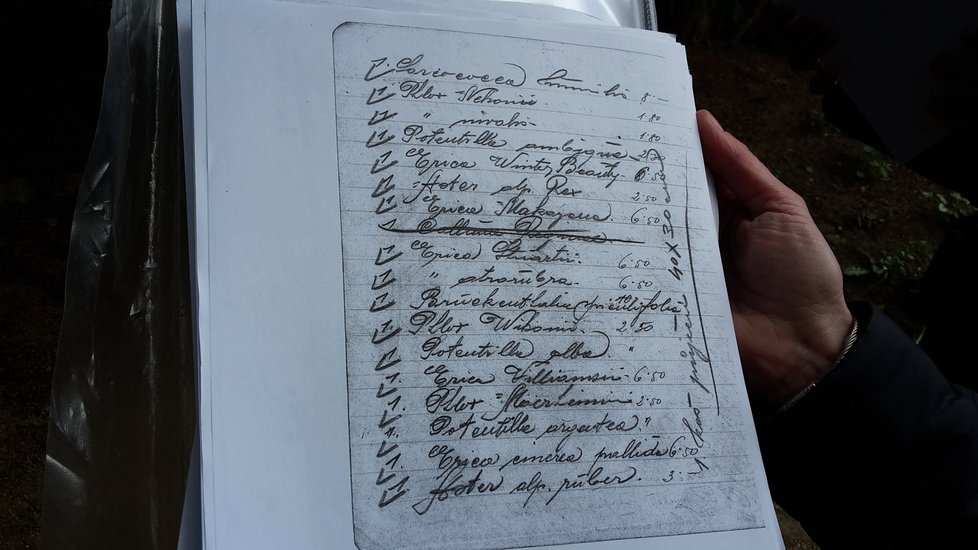 1. Sarcococca humilis 8 -
1 Phlox Nelsonii. 1.80
1 " nivalis - 1.80
1 Potentilla ambigua
1 Erica Winter Beauty. 6.50
1 Aster alp. Rex 2.50
1 Erica Makayana 6.50
1
1 Erica Stuartii. 6.50
1 " atrorubra - 6.50
1
1 Phlox Wilsonii. 2.50
1 Potentilla alba. "
1. Erica Williamsii - 6.50
1. Phlox 2.50
1. Potentilla argentea "
1 Erica cinerea pallida 6.50
1. Aster alp. ruber. 3 -
40 x 30